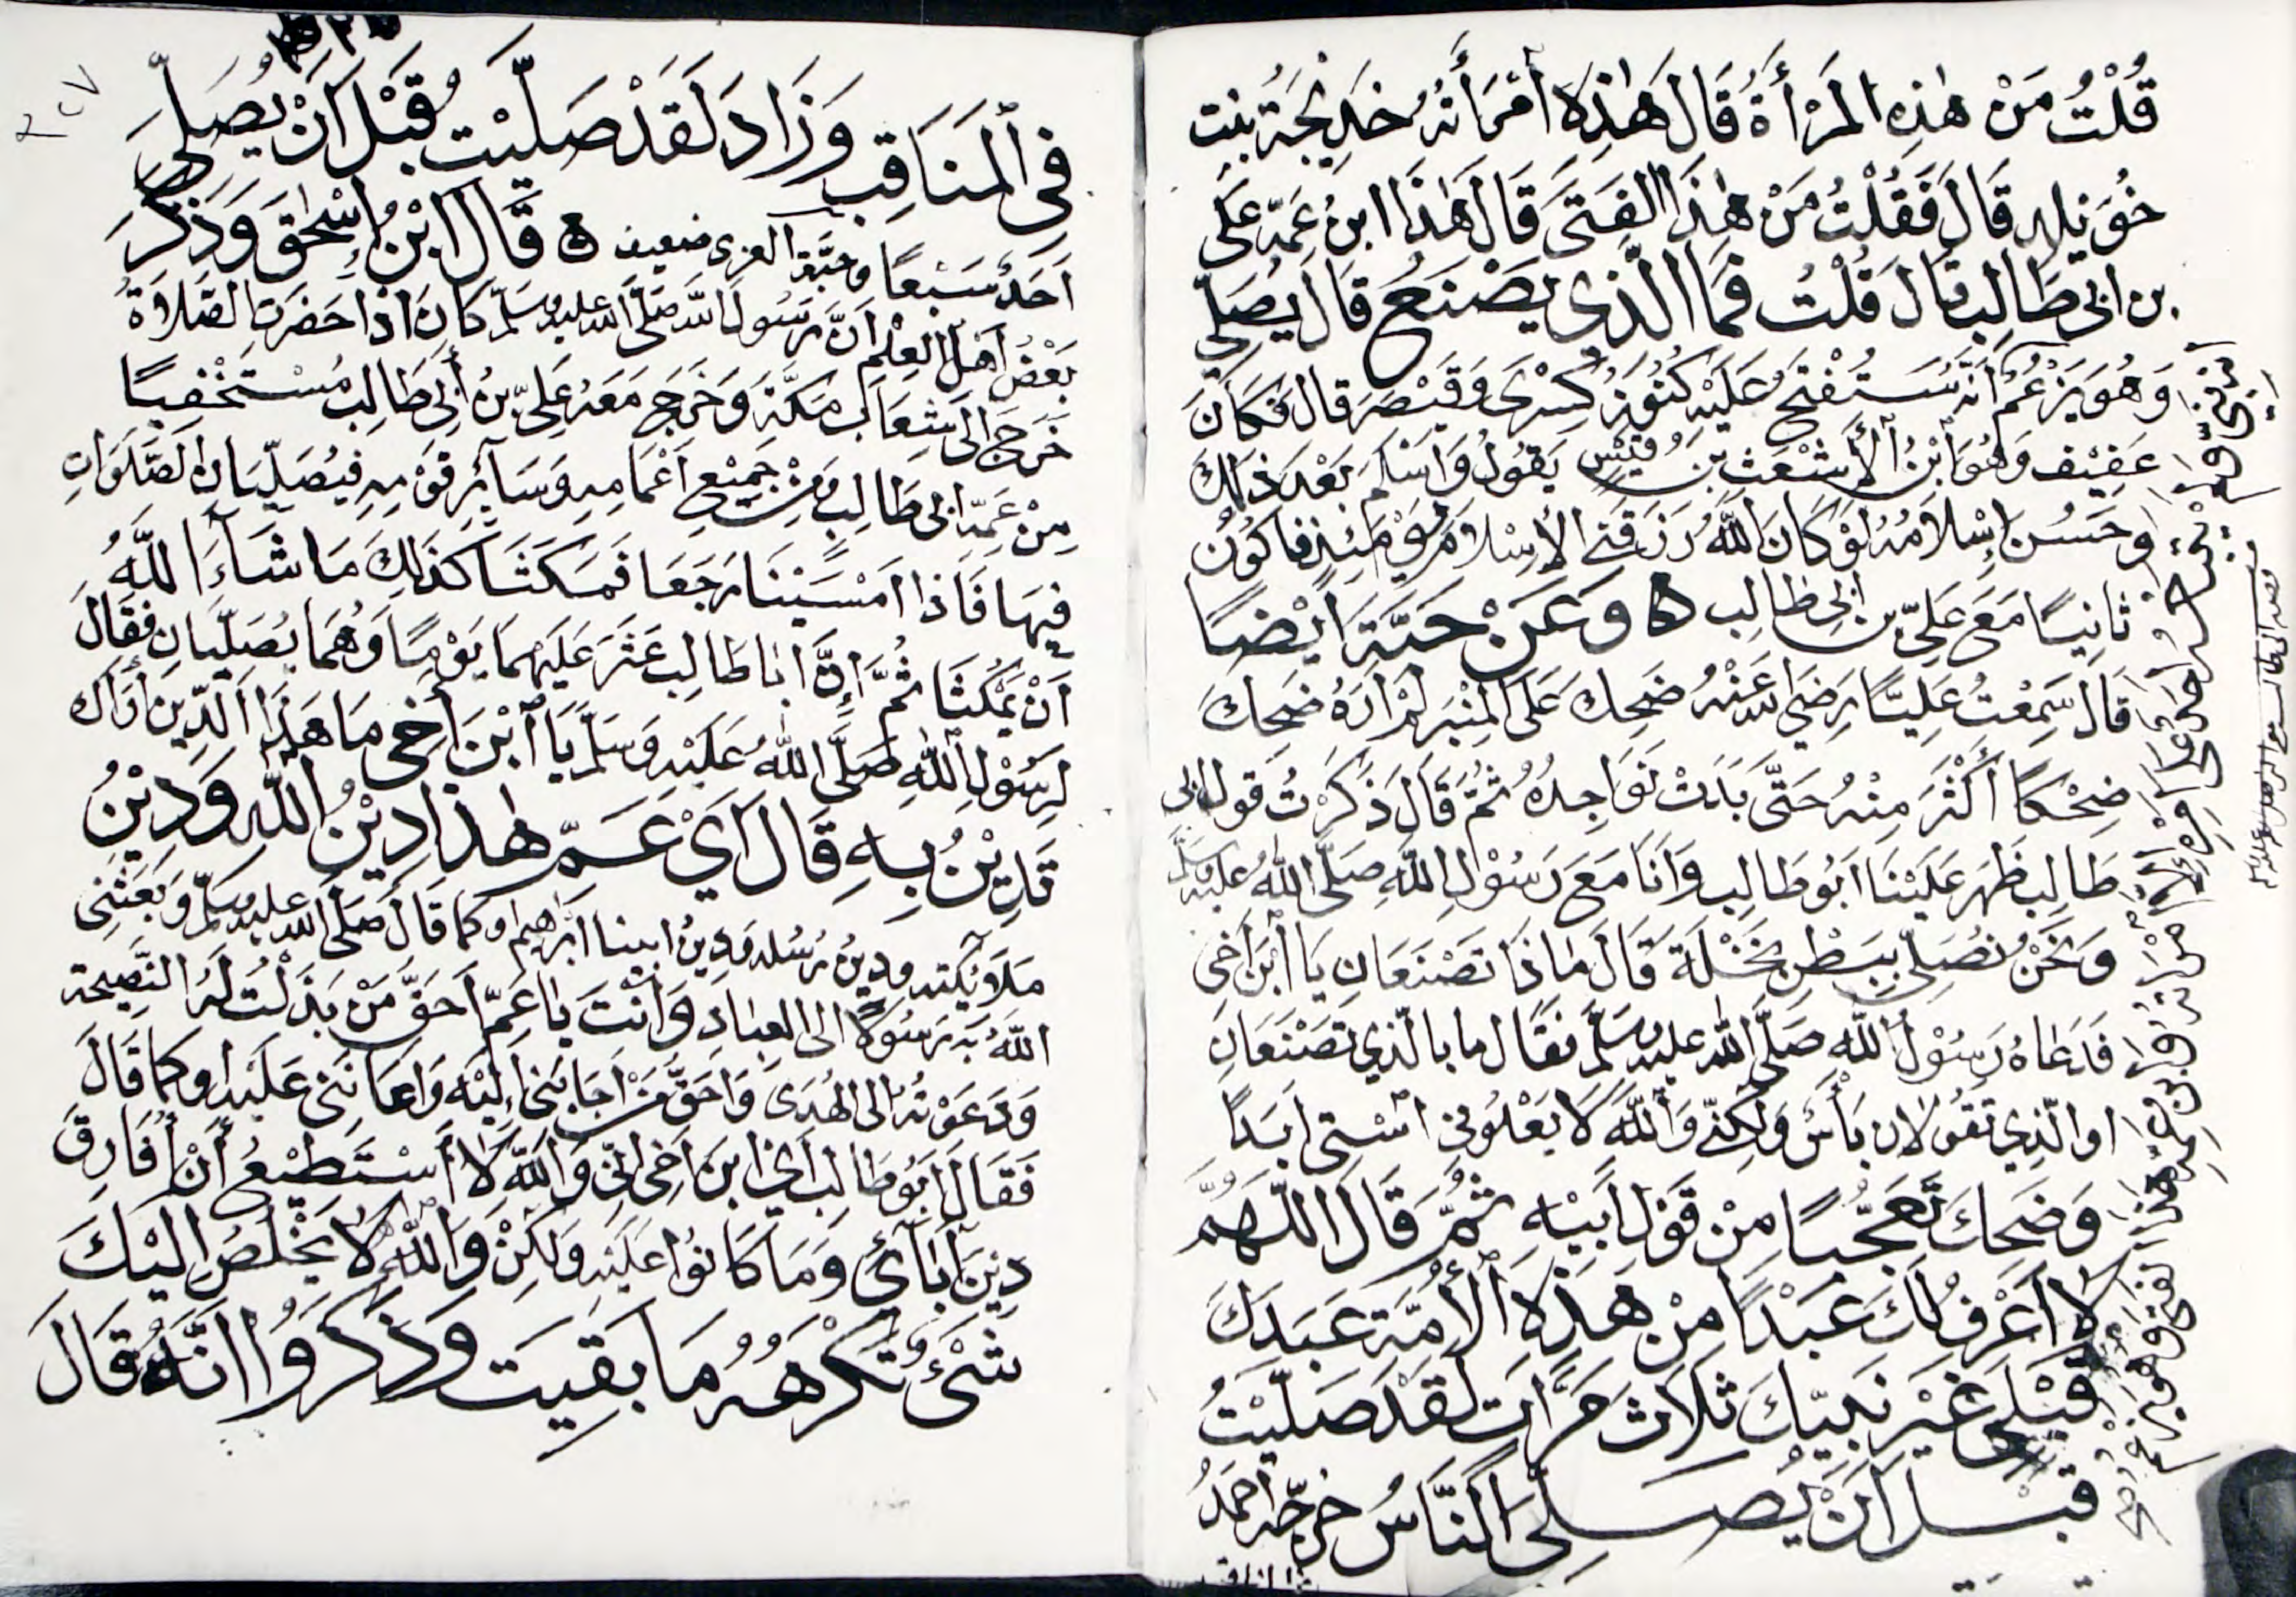 قُلْتُ مَنْ هٰذِهِ المَرْأَةُ قَالَ هٰذِهِ أمْرَأَتُهُ خَدِيْجَةُ بنت
خُوَيْلِد قَالَ فَقُلْتُ مَنْ هٰذَا الفَتَى قَالَ هٰذَا ابنُ عَمِّهِ عَلى
بن ابى طَالِب قَالَ قُلْتُ فَمَا الَّذِى يَصْنَعُ قَالَ يُصَلِّى
وَهُوَ يَزْعُمُ أنَّهُ سَتُفْتَحُ عَلَيْهِ كُنُوْزُ كِسْرَى وَقَيْصَرَ قال فكَانَ
عَفِيْف وَهُوَ ابْنُ الأَشْعَث بن قَيْسٍ يَقُولُ وَاسْلَمَ بَعْدَ ذٰلِكَ
وحَسُنَ إسْلَامُهُ لَوْ كَانَ اللّهُ رَزَقَنِى الإسْلَامَ يَوْمَئِذٍ فاكُوْنُ
ثانِيًا مَعَ عَلِىِّ بن ابى طالب ه وعَنْ حَبَّةَ أيْضًا
قَالَ سَمِعْتُ عَلِيًّا رَضِىَ الله عَنْهُ ضَحِكَ عَلَى المِنْبَرِ لَمْ ارَهُ ضَحِكَ
ضِحْكًا أَكْثَرَ مِنْهُ حَتَّى بَدَتْ نَوَاجِدُهُ ثُمَّ قَالَ ذَكَرْتُ قَولَ ابى
طَالِب ظَهَرَ عَلَيْنَا ابُو طَالِب وَانَا مَعَ رَسُوْلِ اللّهِ صَلَّى اللّهُ عَلَيْهِ وسَلَّمَ
وَنَحْنُ نُصَلِّى بِبَطْنِ نَخْلَة قَالَ مَاذَا تَصْنَعَانِ يَا ابْنَ اخِى
فَدَعَاهُ رَسُوْلُ اللّه صَلَّى اللّه عليه وسَلَّمَ فقَال ما بالّذِى تَصْنَعَانِ
او الَّذِى تقُولان بَأْسٌ ولٰكِنِّى وَاللّهِ لَا يَعْلُوَنِى اسْتِى ابَدًا
وَضَحِكَ تَعَجُّبًا مِنْ قَوْلِ أَبِيْهِ ثُمَّ قَالَ اللّهُمَّ
لا اعْرِفُ لَكَ عَبْدًا مِنْ هٰذِهِ الأُمَّة عَبَدَكَ
قَبْلِى غَيْرَ نَبِيِّكَ ثَلَاثَ مَرَّات لَقَدْ صَلَّيْتُ
قَبْلَ أَنْ يُصَلِّىَ النَّاسُ خرّجه أحمَدُ
فى المَنَاقِب وَزَادَ لَقَدْ صَلَّيْت قَبْلَ أنْ يُصَلِّىَ
أَحَدٌ سَبْعًا وحَبَّة العرنى ضعيف ه قَالَ ابْنُ إسْحٰقَ وَذَكَرَ
بَعْضُ اهْلِ العِلْمِ انَّ رَسُولَ اللّه صَلَّى اللّه عليه وسَلَّم كَانَ اذَا حَضَرَت الصَّلاَةُ
خَرَجَ الى شِعَاب مَكَّةَ وَخَرَجَ مَعَهُ عَلِىُّ بنُ أبى طَالِب مُسْتَخْفِيًا
مِنْ عَمِّهِ ابى طَالِب وَمِنْ جَمِيْعِ أَعْمَامِهِ وَسَائِرِ قَوْمِهِ فيُصَلِّيَان الصَّلَوَاتِ
فِيْهَا فَاذَا امْسَيْنَا رَجَعَا فَمَكَثَا كَذٰلِكَ مَا شَآءَ اللّهُ
أنْ يَمْكُثَا ثُمَّ إنَّ ابا طَالِب عَثَرَ عَلَيْهِمَا يَوْمًا وَهُمَا يُصَلِّيَانِ فقَالَ
لِرَسُوْلِ اللّهِ صَلَّى اللّهُ عَلَيْهِ وَسَلَّمَ يَا ابْنَ أخِى مَا هٰذَا الدِّيْن أَرَاك
تَدِيْنُ بِهِ قَالَ أىْ عَمّ هٰذَا دِيْنُ اللّهِ وَدِيْنُ
مَلَآئِكَتِهِ ودِيْنُ رُسُلِهِ وَدِيْنُ ابينا ابْرَاهِيم او كما قَالَ صَلَّى اللّه عليه وسَلَّم وَبَعَثَنِى
اللّهُ بِه رَسُوْلًا الى العِبَادِ وَأنْتَ يا عَمّ أَحَقُّ مَنْ بَذَلْت لَهُ النَّصِيحة
وَدَعَوْتُهُ الى الهُدَى وَأَحَقُّ مَنْ أجَابَنِى الَيْهِ وَاعَانَنِى عَلَيْه او كما قَالَ
فَقَالَ أبُو طَالِب اى ابنَ اخِى انِّى وَاللّهِ لَا أسْتَطِيْعُ أنْ أُفَارِقَ
دِيْنَ آبَآئِى وَمَا كَانُوْا عَلَيْهِ وَلٰكِنْ وَاللّهِ لَا يَخْلُصُ اليْكَ
شَىْءٌ تَكْرَهُهُ مَا بَقِيَت وَذَكَرُوْا انَّهُ قَالَ